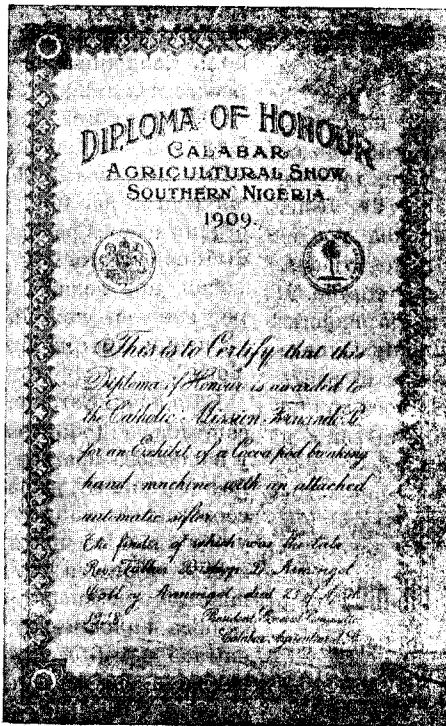 DIPLOMA OF HONOUR
CALABAR
AGRICULTURAL SHOW
SOUTHERN NIGERIA
1909.
This is to Certify that this
Diploma of Honour is awarded to
the Catholic Mission Fernando P
for an Exhibit of a Cocoa pod breaking
hand machine with an attached
automatic sifter
the finder of which was the late
Rev. Father Bishop D. Armengol
Coll y Armengol, died 21 of
1918
President, General Committee
Calabar